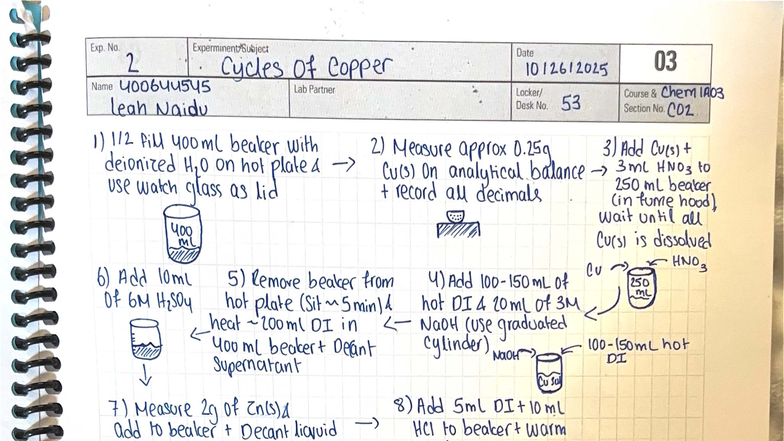 Exp. No.
2
Experminent/Subject
Cycles Of Copper
Date
10/26/2025
03
Name 400644545
Leah Naidu
Lab Partner
Locker/
Desk No. 53
Course & Chem 1A03
Section No. C02
1) 1/2 fill 400ml beaker with
deionized H₂O on hot plate &
use watch glass as lid
→
400
mL
2) Measure approx 0.25g
Cu(s) on analytical balance
+ record all decimals
→
3) Add Cu(s) +
3mL HNO₃ to
250 mL beaker
(in fume hood),
wait until all
Cu(s) is dissolved
Cu → ← HNO₃
250
mL
4) Add 100-150mL of
hot DI & 20mL of 3M
NaOH (use graduated
cylinder)
NaOH
100-150mL hot
DI
Cu sol
←
5) Remove beaker from
hot plate (Sit ~5min) &
heat ~200ml DI in
400 ml beaker + Decant
Supernatant
←
6) Add 10ml
Of 6M H₂SO₄
↓
7) Measure 2g of Zn(s) &
add to beaker + Decant liquid
→
8) Add 5mL DI + 10 mL
HCl to beaker + warm